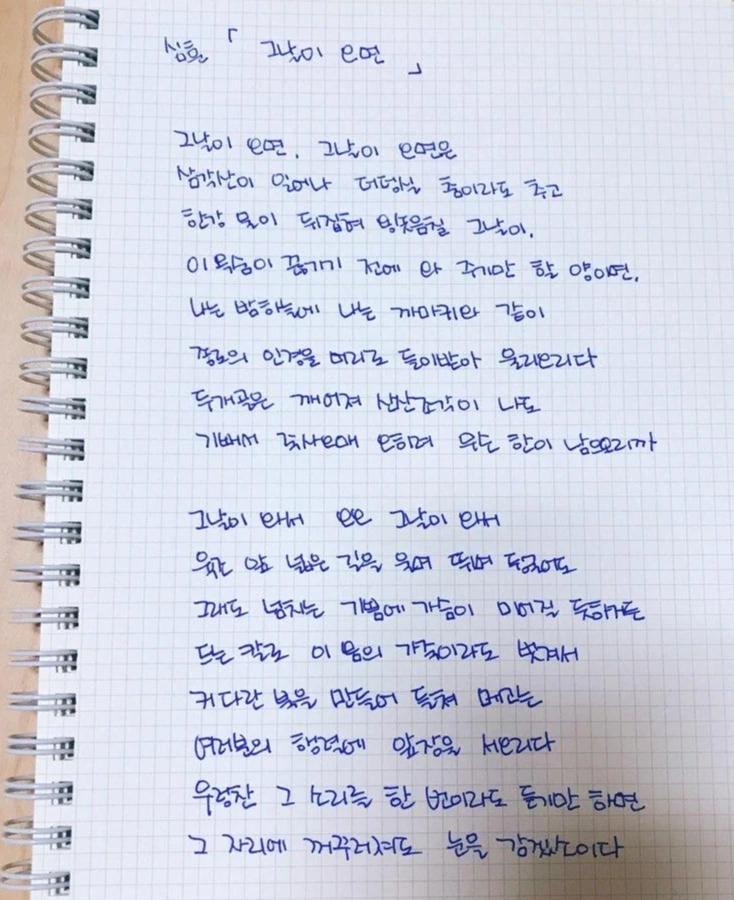 심훈 「 그날이 오면 」
그날이 오면, 그날이 오면은
삼각산이 일어나 더덩실 춤이라도 추고
한강 물이 뒤집혀 용솟음칠 그날이,
이 목숨이 끊기기 전에 와 주기만 할 양이면,
나는 밤하늘에 나는 까마귀와 같이
종로의 인경을 머리로 들이받아 울리오리다
두개골은 깨어져 산산조각이 나도
기뻐서 죽사오매 오히려 무슨 한이 남으오리까
그날이 와서 오오 그날이 와서
육조 앞 넓은 길을 울며 뛰며 뒹굴어도
그래도 넘치는 기쁨에 가슴이 미어질 듯하거든
드는 칼로 이 몸의 가죽이라도 벗겨서
커다란 북을 만들어 들쳐 메고는
여러분의 행렬에 앞장을 서오리다
우렁찬 그 소리를 한 번이라도 듣기만 하면
그 자리에 꺼꾸러져도 눈을 감겠소이다